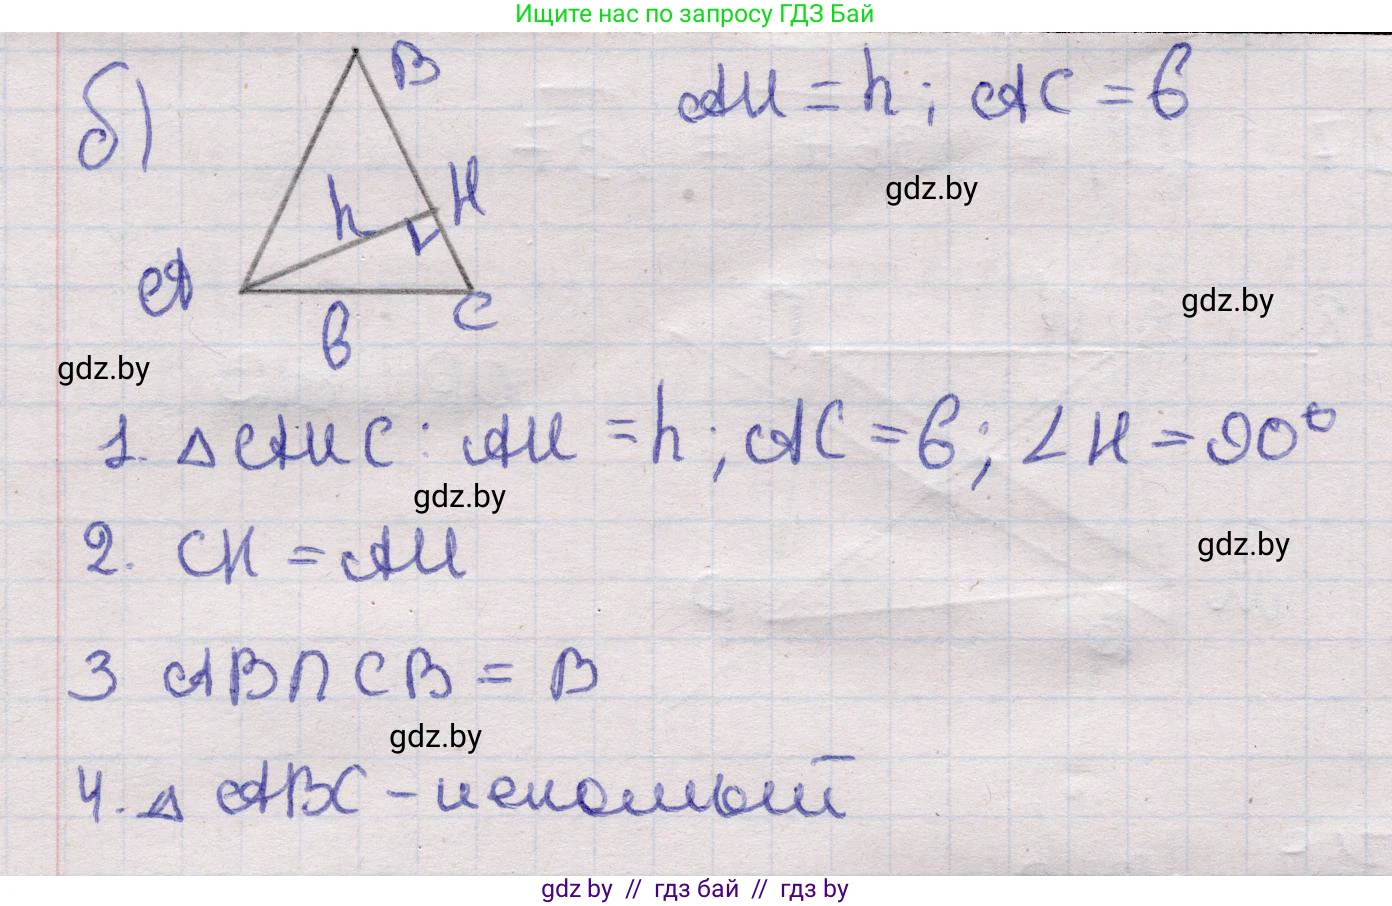 Ищите нас по запросу ГДЗ Бай
б)
B
AH = h; AC = в
gdz.by
h
H
A
в
C
gdz.by
gdz.by
1. △ AHC: AH = h; AC = в; ∠H = 90°
gdz.by
2. CH = AH
gdz.by
3 AB ∩ CB = B
gdz.by
4. △ ABC - искомый
gdz by // гдз бай // гдз by